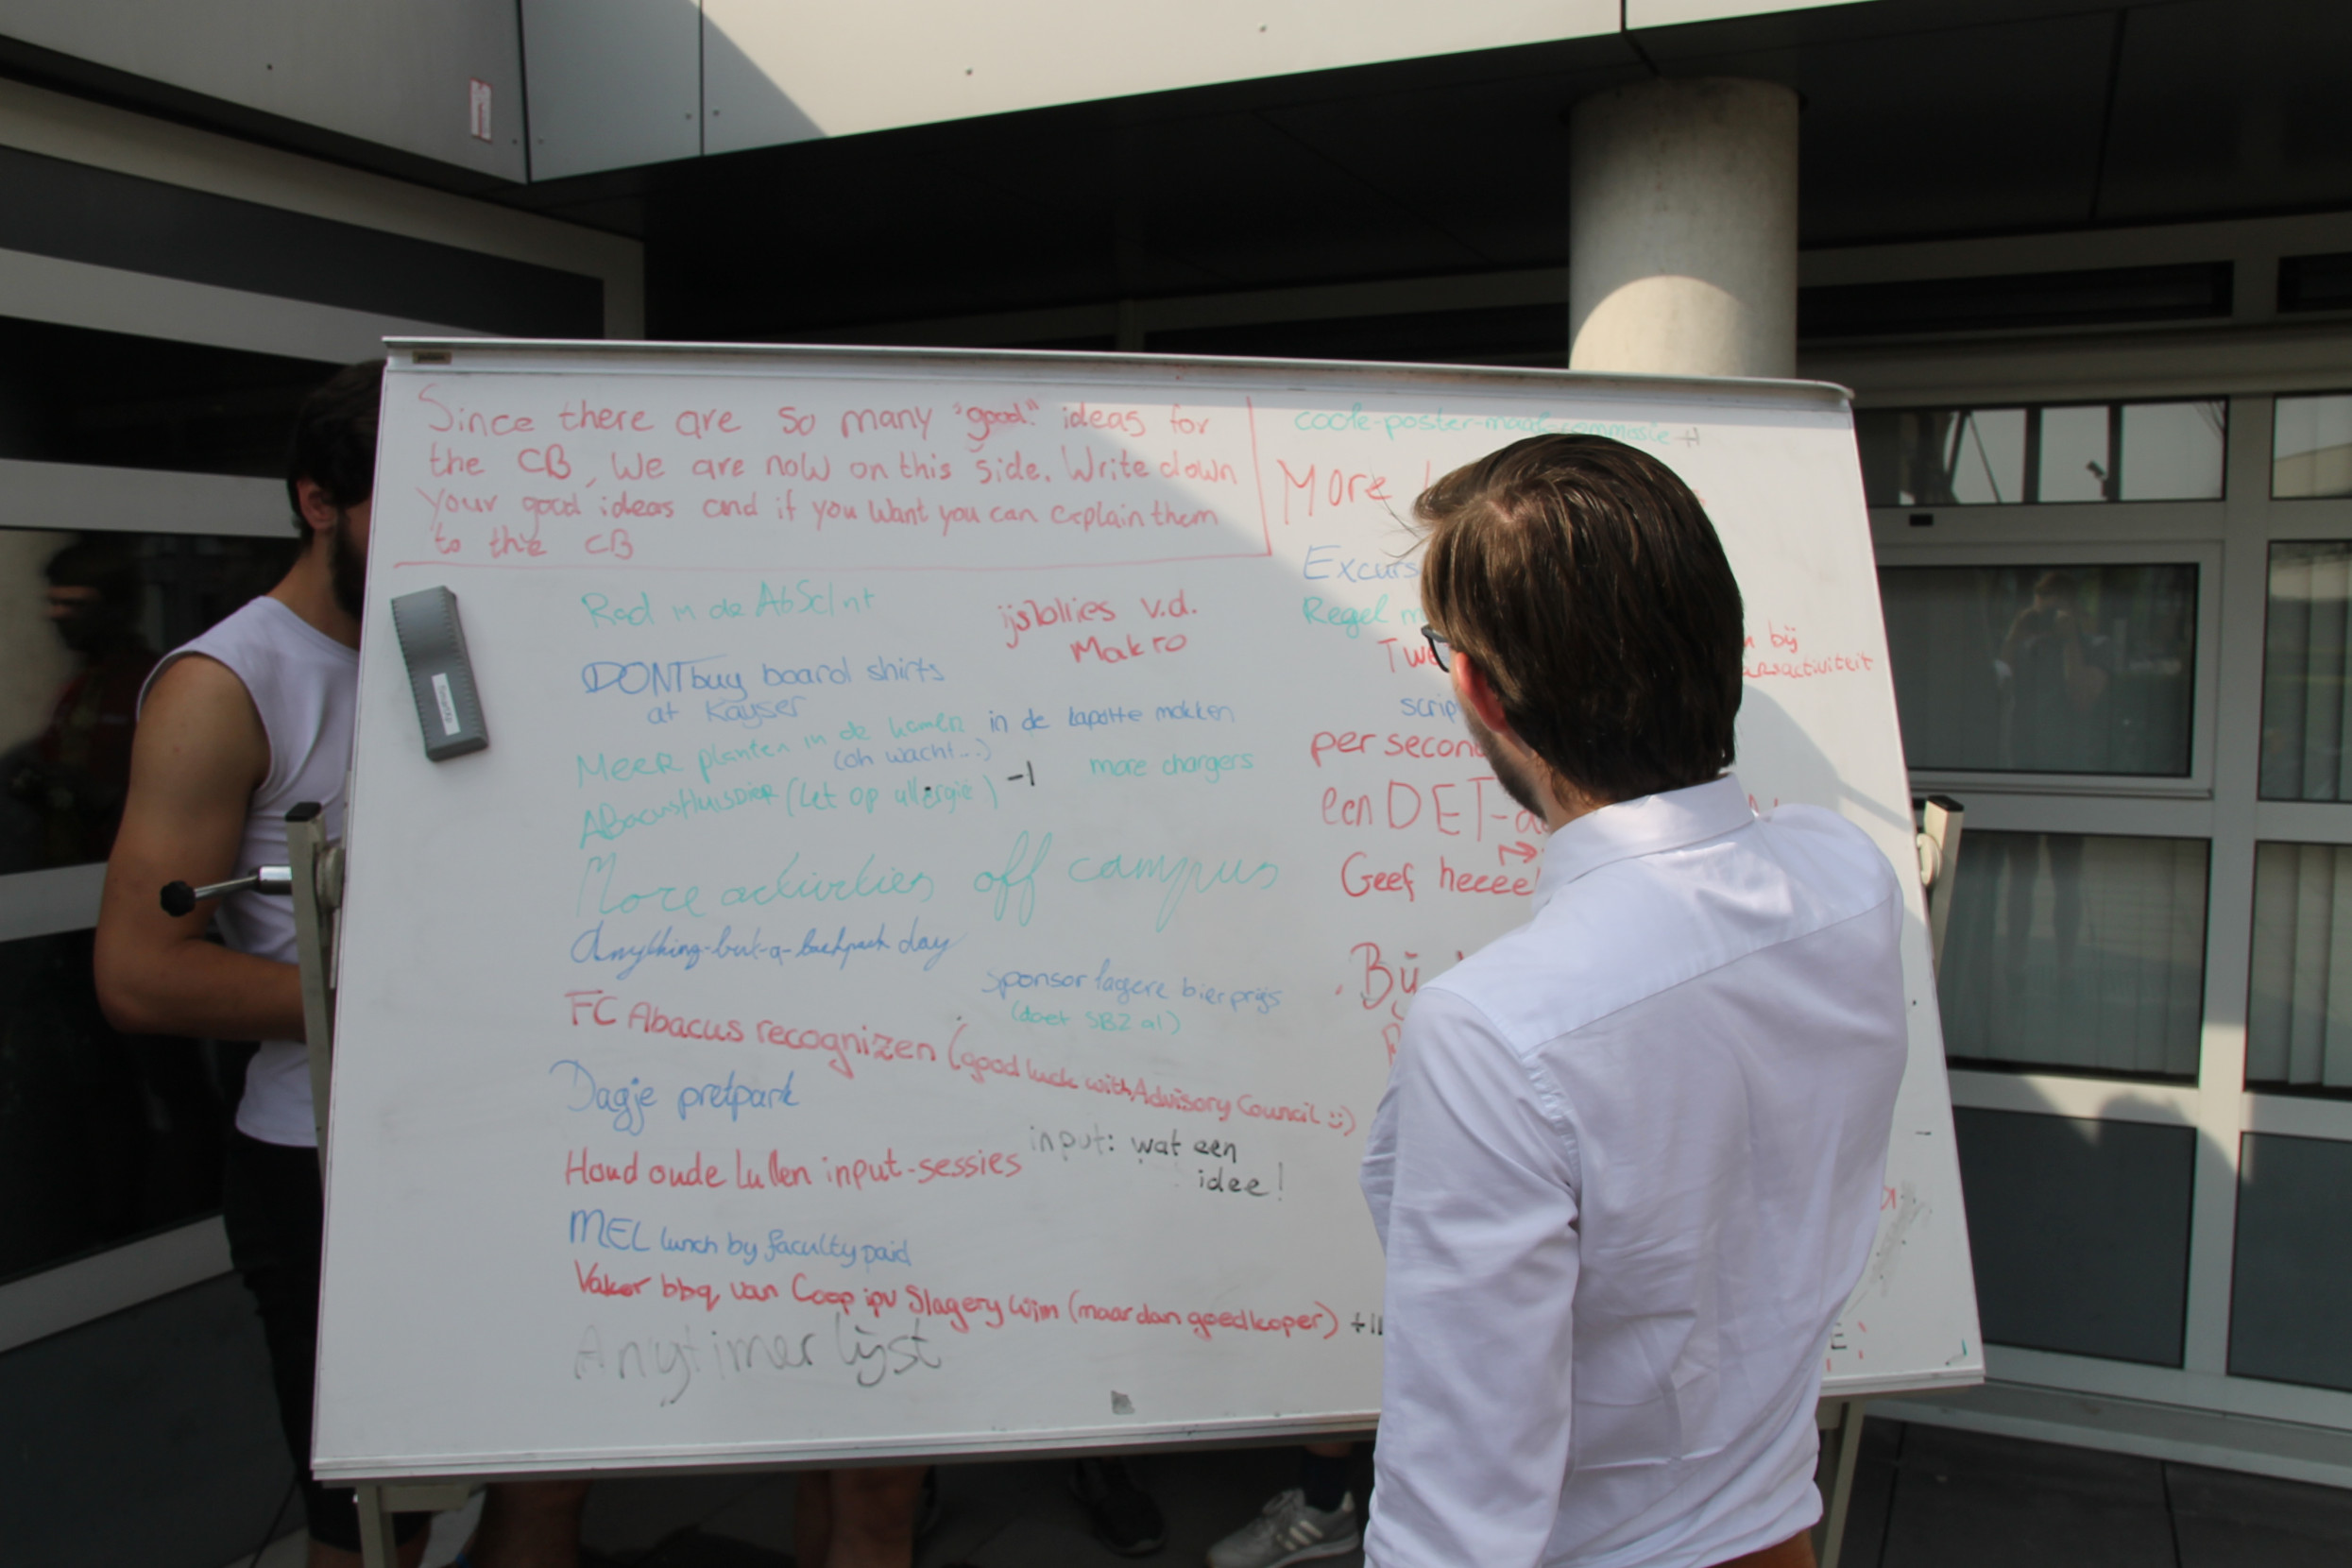 Since there are so many "good" ideas for
the CB, We are now on this side. Write down
your good ideas and if you want you can explain them
to the CB
Rad in de AbScInt
ijsblies v.d.
Makro
DONT buy board shirts
at Kayser
MEER planten in de kamer
in de kapotte mokken
(oh wacht...)
ABacusHuisDier (Let op allergie) -1
more chargers
More activities off campus
Anything-but-a-backpack day
Sponsor lagere bierprijs
(doet SBZ al)
FC Abacus recognizen (good luck with Advisory Council :))
Dagje pretpark
Houd oude lullen input-sessies
input: wat een
idee!
MEL lunch by faculty paid
Vaker bbq van Coop ipv Slagery Wim (maar dan goedkoper) +11
Anytimer lijst
coole-poster-maak-commissie +1
More
Regel
bij
per second
een DET-
Geef
Bij